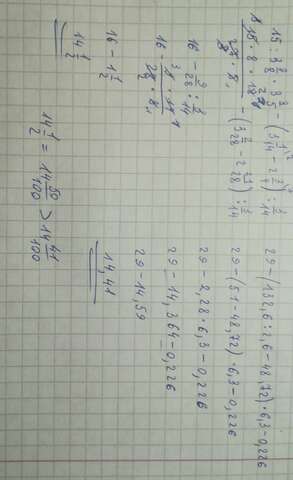 15 : 3 3/8 · 3 3/5 − (3 1/14 − 2 3/4) : 3/14
15 · 8 · 18 / 27 · 5 − (3 2/28 − 2 21/28) : 3/14
16 − 9/28 : 3/14
16 − 9 · 14 / 28 · 3
16 − 1 1/2
14 1/2
29 − (132,6 : 2,6 − 48,72) · 6,3 − 0,226
29 − (51 − 48,72) · 6,3 − 0,226
29 − 2,28 · 6,3 − 0,226
29 − 14,364 − 0,226
29 − 14,59
14,41
14 1/2 = 14 50/100 > 14 41/100